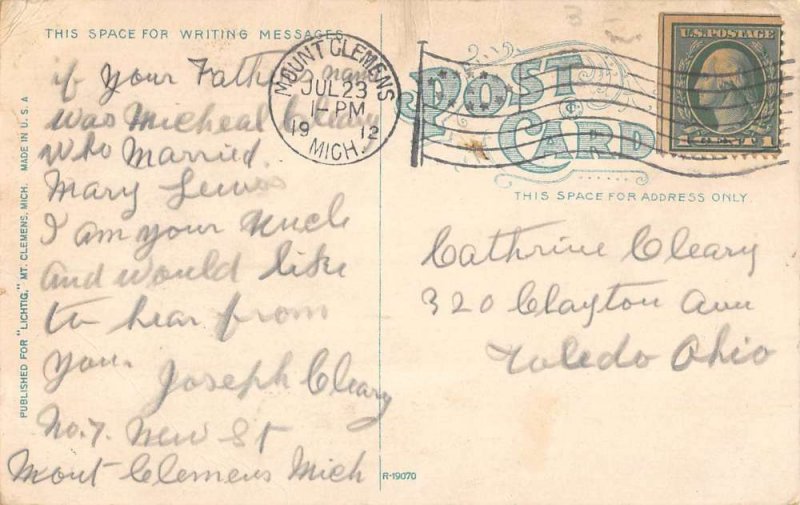 THIS SPACE FOR WRITING MESSAGES
if your Father's name
was Micheal Cleary
who Married
Mary Lewis
I am your Uncle
and would like
to hear from
you.
Joseph Cleary
No. 7. New St
Mont Clemens Mich
PUBLISHED FOR "LICHTIG," MT. CLEMENS, MICH. MADE IN U.S.A
MOUNT CLEMENS
JUL 23
1-PM
1912
MICH.
POST CARD
U.S. POSTAGE
1 1
THIS SPACE FOR ADDRESS ONLY
Cathrine Cleary
320 Clayton Ave
Toledo Ohio
R-19070